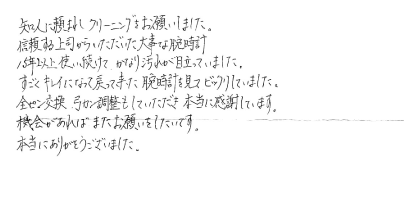 知人に頼まれ クリーニングをお願いしました。
信頼する上司からいただいた大事な腕時計
15年以上使い続けて かなり汚れが目立っていました。
すごくキレイになって戻って来た 腕時計を見てビックリしていました。
全センタ交換 弓カン調整もしていただき 本当に感謝しています。
機会があれば またお願いをしたいです。
本当にありがとうございました。